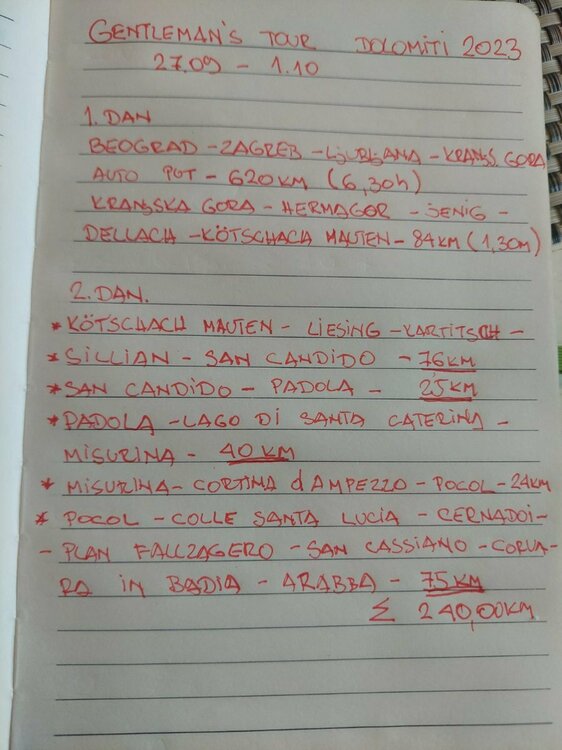 GENTLEMAN'S TOUR DOLOMITI 2023
27.09 - 1.10
1. DAN
BEOGRAD - ZAGREB - LJUBLJANA - KRANJS. GORA
AUTO PUT - 620 KM (6,30h)
KRANJSKA GORA - HERMAGOR - JENIG -
DELLACH - KÖTSCHACH MAUTEN - 84 KM (1,30m)
2. DAN.
* KÖTSCHACH MAUTEN - LIESING - KARTITSCH -
* SILLIAN - SAN CANDIDO - 76 KM
* SAN CANDIDO - PADOLA - 25 KM
* PADOLA - LAGO DI SANTA CATERINA -
MISURINA - 40 KM
* MISURINA - CORTINA d AMPEZZO - POCOL - 24KM
* POCOL - COLLE SANTA LUCIA - CERNADOI -
- PLAN FALLZAGERO - SAN CASSIANO - CORVA-
RA in BADIA - ARABBA - 75 KM
Σ 240,00KM